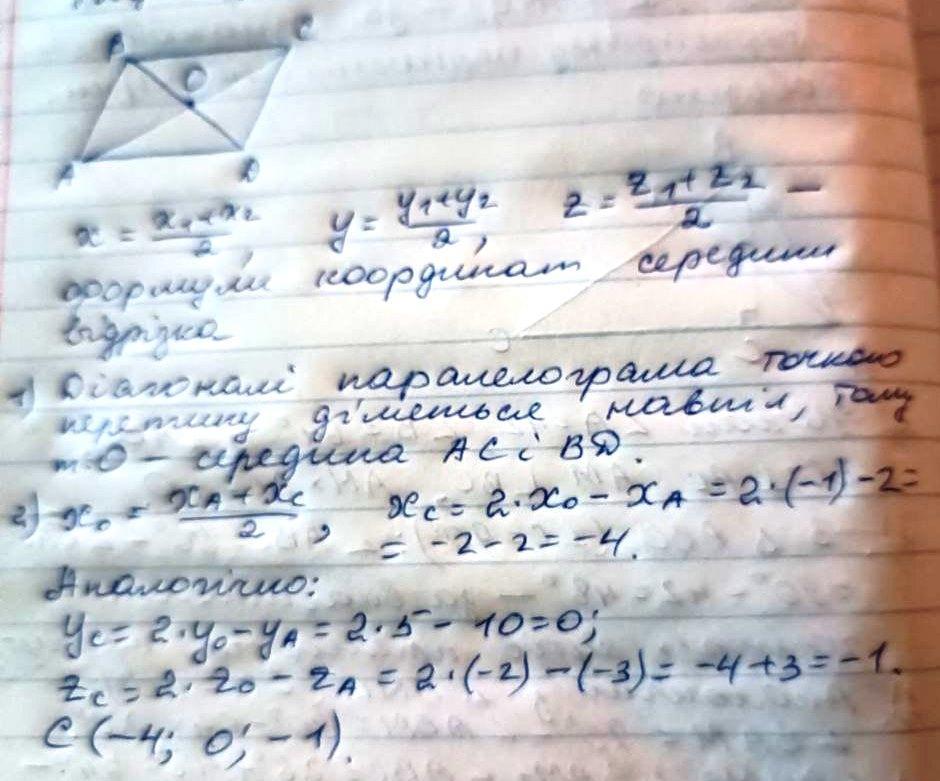 B C
O
A D
x = (x₁+x₂)/2, y = (y₁+y₂)/2, z = (z₁+z₂)/2 –
формули координат середини
відрізка
1) Діагоналі паралелограма точкою
перетину діляться навпіл, тому
т.O – середина AC і BD.
2) x₀ = (xA + xC)/2, xC = 2·x₀ – xA = 2·(-1) – 2 =
= -2 – 2 = -4.
Аналогічно:
yC = 2·y₀ – yA = 2·5 – 10 = 0;
zC = 2·z₀ – zA = 2·(-2) – (-3) = -4 + 3 = -1.
C (-4; 0; -1).